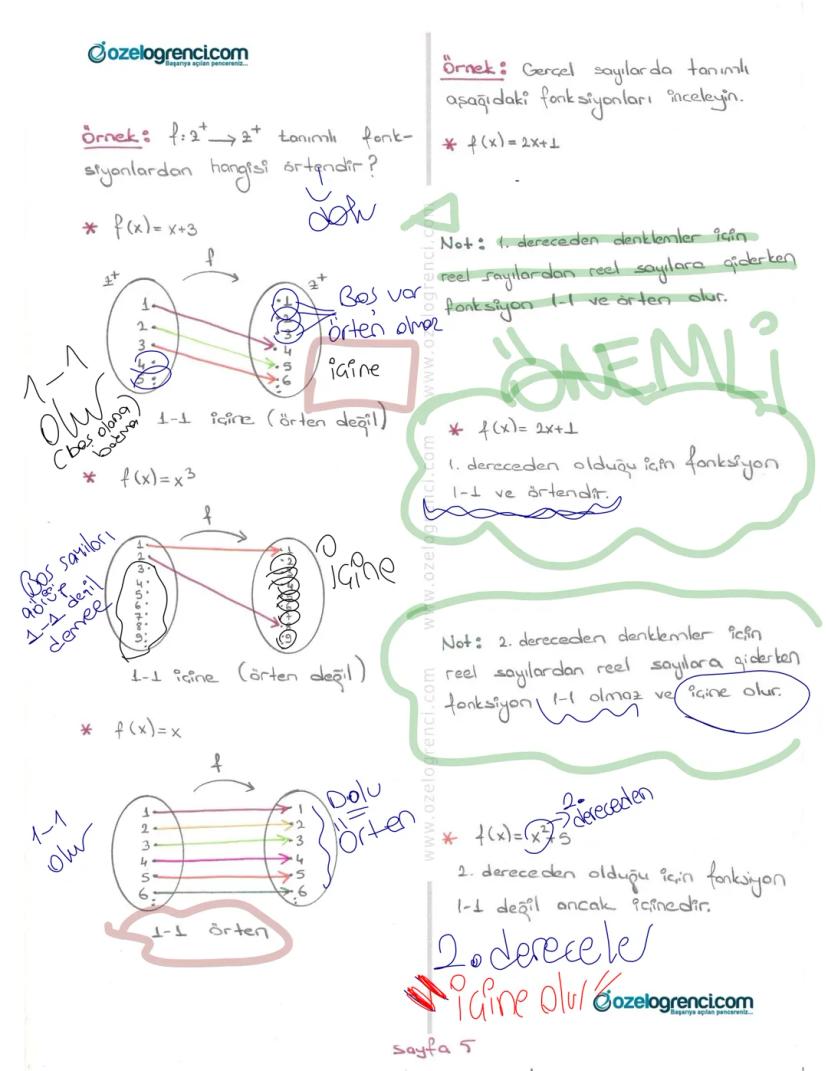 ozelogrenci.com
Başarıya açılan pencereniz...
Örnek: f: Z⁺ → Z⁺ tanımlı fonk-
siyonlardan hangisi örtendir?
dolu
* f(x) = x+3
f
Z⁺
Z⁺
1
2
3
4
5
1
2
3
4
5
6
Boş var
örten olmaz
içine
1-1
olur
(boş olana
bakma)
1-1 içine (örten değil)
* f(x) = x³
f
Boş sayıları
görüp
1-1 değil
deme
1
2
3
4
5
6
7
8
9
1
2
8
9
içine
1-1 içine (örten değil)
* f(x) = x
f
1-1
olur
1
2
3
4
5
6
1
2
3
4
5
6
Dolu
=
örten
1-1 örten
Örnek: Gerçel sayılarda tanımlı
aşağıdaki fonksiyonları inceleyin.
* f(x) = 2x+1
Not: 1. dereceden denklemler için
reel sayılardan reel sayılara giderken
fonksiyon 1-1 ve örten olur.
ÖNEMLİ
* f(x) = 2x+1
1. dereceden olduğu için fonksiyon
1-1 ve örtendir.
Not: 2. dereceden denklemler için
reel sayılardan reel sayılara giderken
fonksiyon 1-1 olmaz ve içine olur.
2. dereceden
* f(x) = x²+5
2. dereceden olduğu için fonksiyon
1-1 değil ancak içinedir.
2. dereceler
içine olur
www.ozelogrenci.com
www.ozelogrenci.com
www.ozelogrenci.com
ozelogrenci.com
Başarıya açılan pencereniz...
sayfa 5